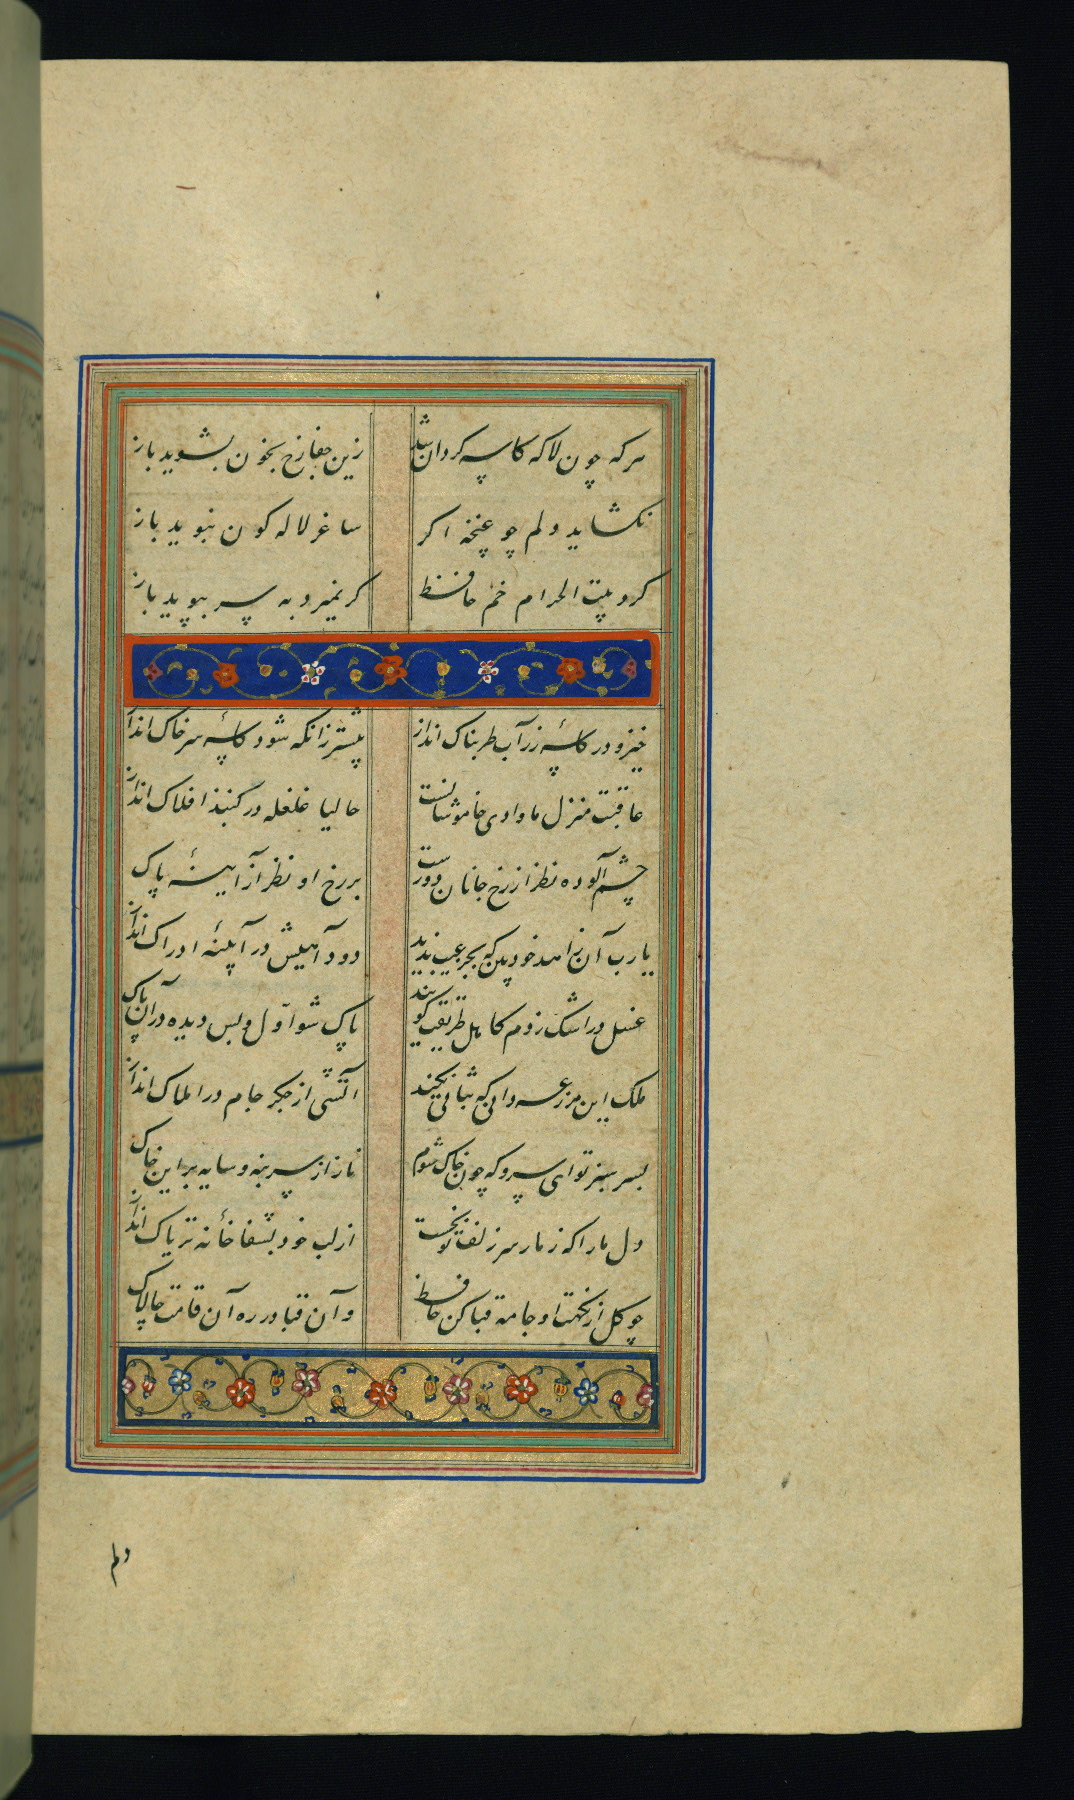 هرکه چون لاله کاسه گردان شد
زین جفا رخ بخون بشوید باز
نکشاید دلم چو غنچه اکر
ساغر لاله کون نبوید باز
کرد بیت الحرام خم حافظ
کر نمیرد به سر بپوید باز
خیز و در کاسهٔ زر آب طربناک انداز
پیشتر زانکه شود کاسهٔ سر خاک انداز
عاقبت منزل ما وادی خاموشانست
حالیا غلغله در کنبذ افلاک انداز
چشم آلوده نظر از رخ جانان دورست
بر رخ او نظر از آیینهٔ پاک
یا رب آن زاهد خودبین که بجز عیب ندید
دود آهیش در آیینهٔ ادراک انداز
غسل در اشک زدم کاهل طریقت کویند
پاک شو اول و پس دیده در آن پاک
ملک این مزرعه دانی که ثباتی نکند
آتشی از جکر جام در املاک انداز
بسر سبز تو ای سرو که چون خاک شوم
ناز از سر بنه و سایه بر این خاک
دل ما را که ز مار سر زلف تو بخست
از لب خود بشفاخانهٔ تریاک انداز
چو کل از نکهت او جامه قبا کن حافظ
و آن قبا در ره آن قامت چالاک
دلم